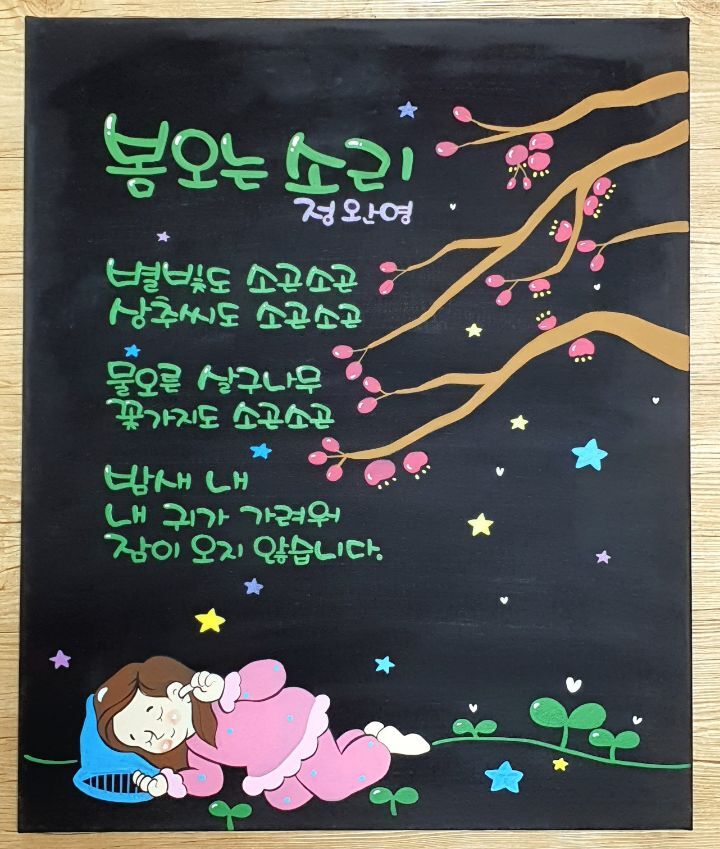 봄오는 소리
정완영
별빛도 소곤소곤
상추씨도 소곤소곤
물오른 살구나무
꽃가지도 소곤소곤
밤새 내
내 귀가 가려워
잠이 오지 않습니다.